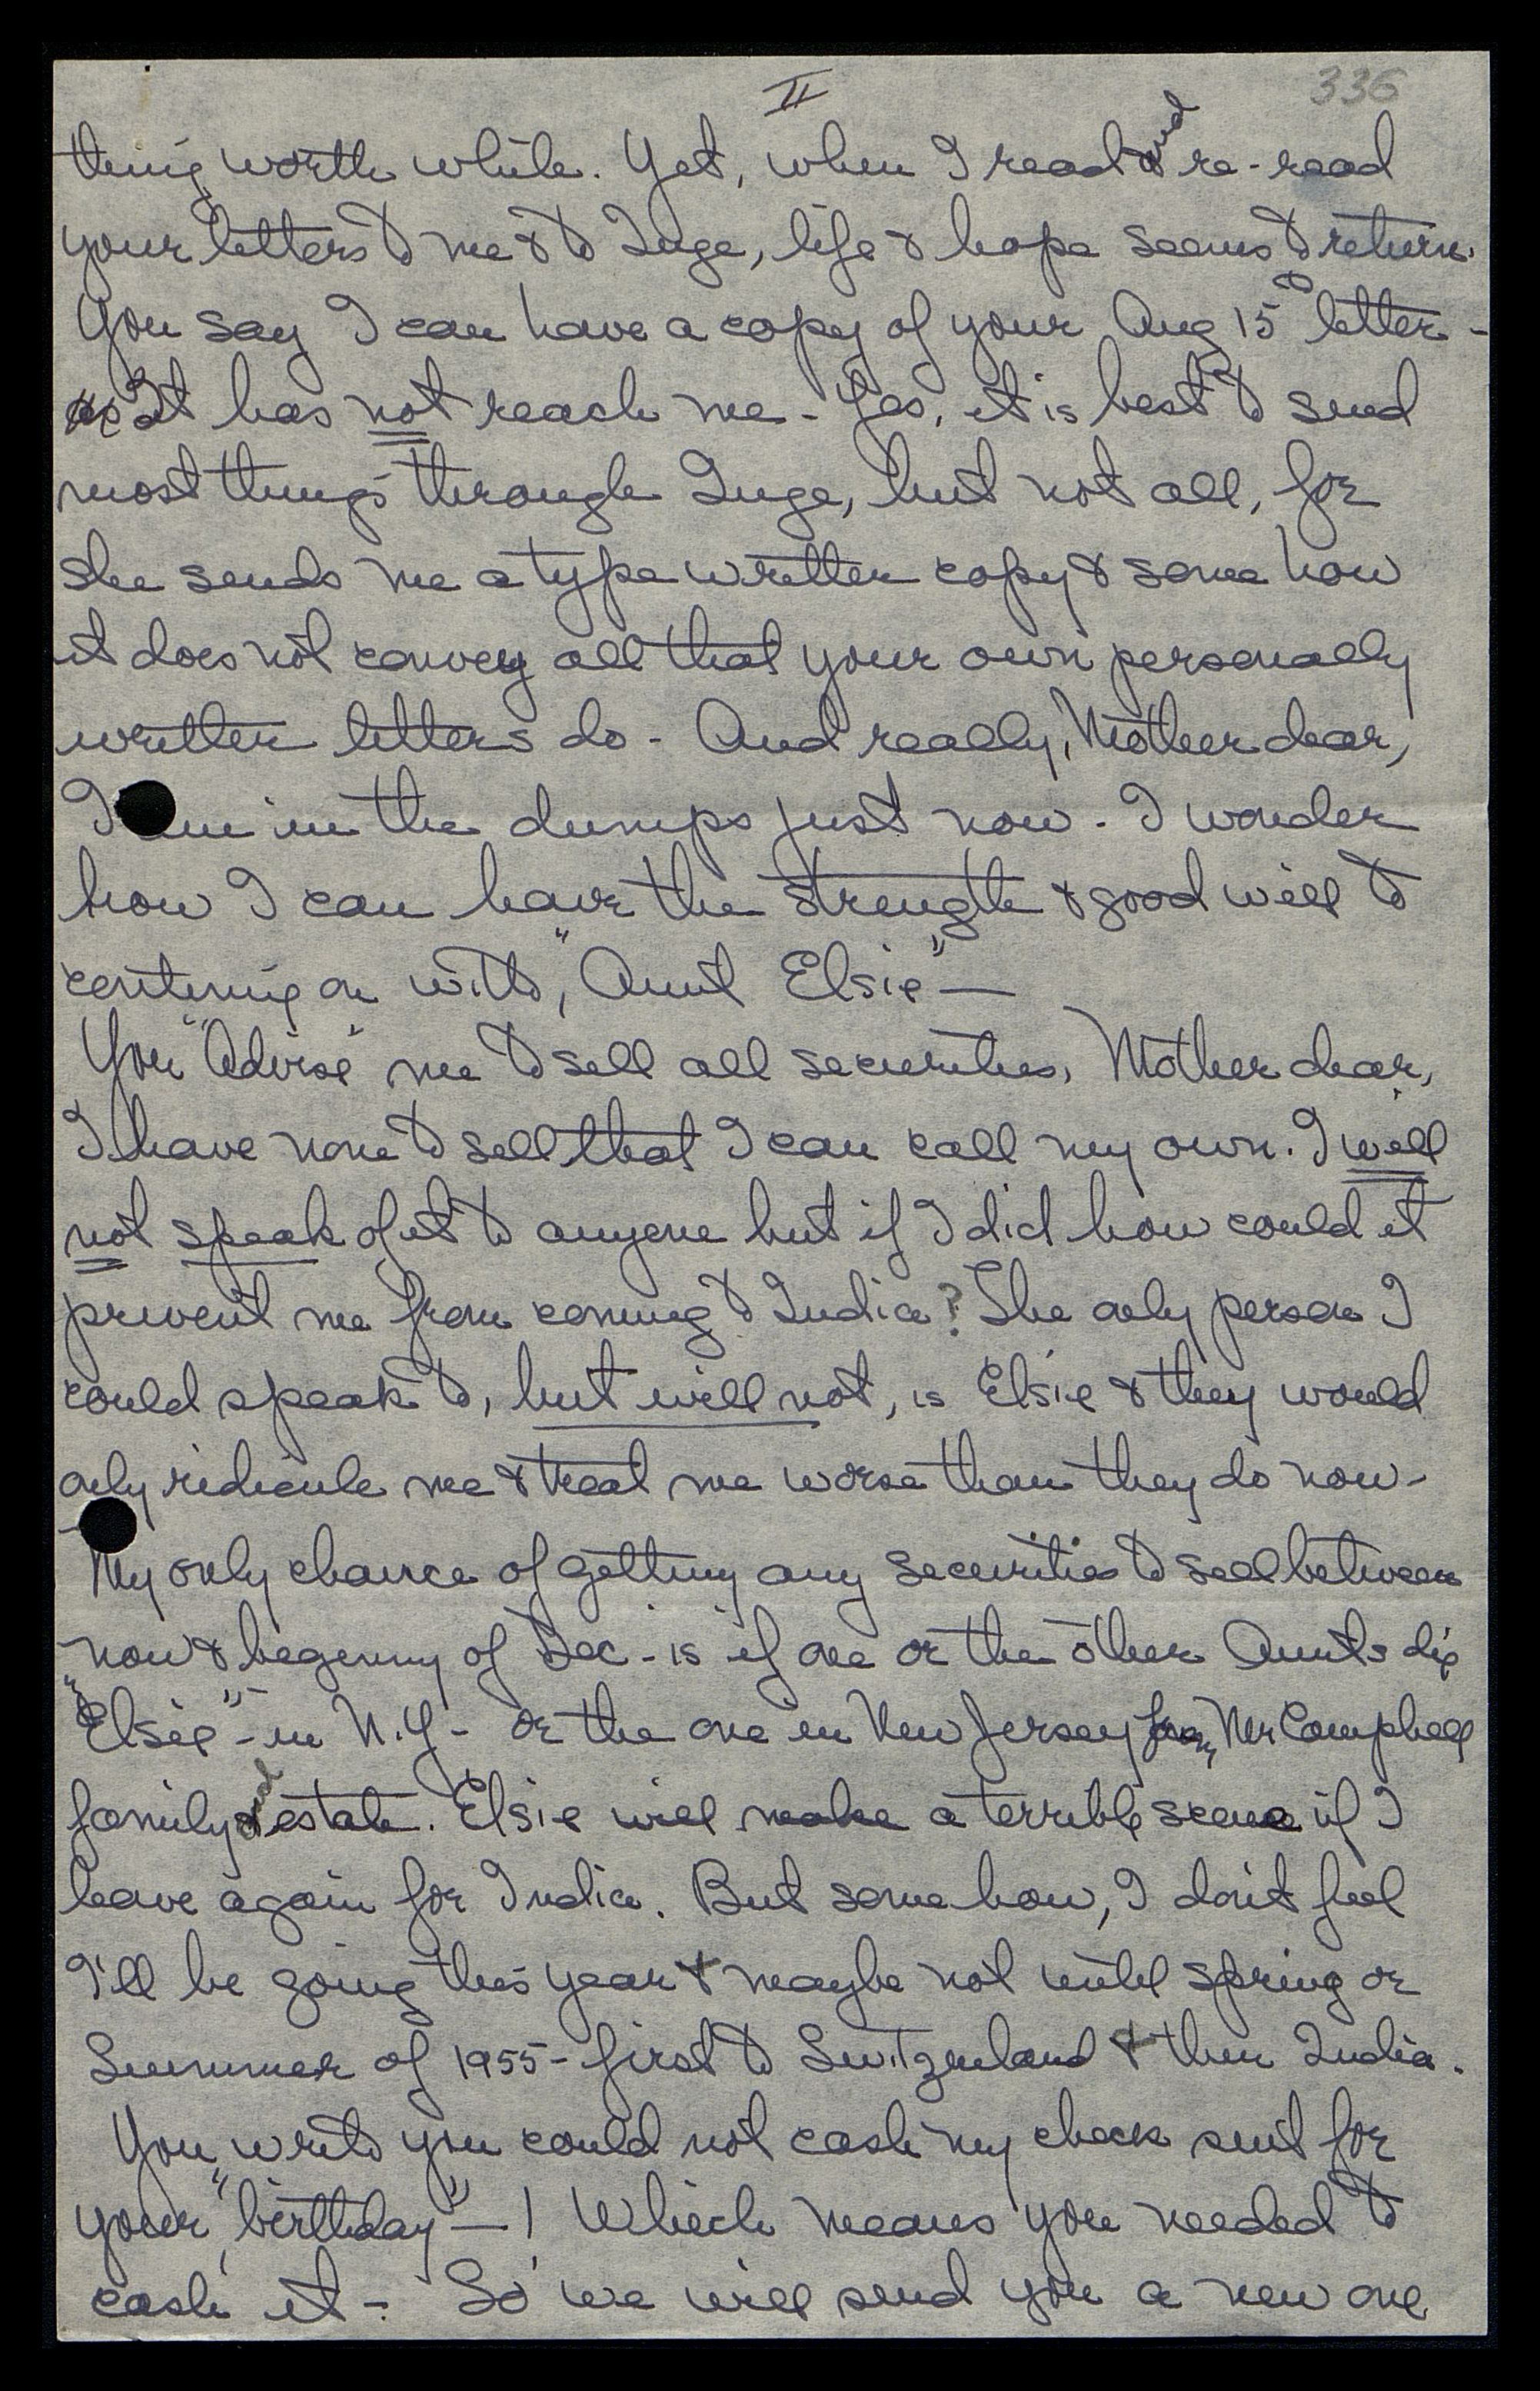 II 336
thing worth while. Yet, when I read and re-read
your letters to me & to Inge, life & hope seems to return.
You say I can have a copy of your Aug 15th letter -
It has not reach me - Yes, it is best to send
most things through Inge, but not all, for
she sends me a type written copy & some how
it does not convey all that your own personally
written letters do - And really, Mother dear,
I am in the dumps just now - I wonder
how I can have the strength & good will to
continuing on with, "Aunt Elsie" —
You "advise" me to sell all securities, Mother dear,
I have none to sell that I can call my own. I will
not speak of it to anyone but if I did how could it
prevent me from coming to India? The only person I
could speak to, but will not, is Elsie & they would
only ridicule me & treat me worse than they do now -
My only chance of getting any securities to sell between
now & beginny of Dec - is if one or the other Aunts die
"Elsie" - in N.Y - or the one in New Jersey from Mr Campbell
family and estate. Elsie will make a terrible scene if I
leave again for India. But some how, I don't feel
I'll be going this year & maybe not until spring or
Summer of 1955 - first to Switzerland & then India.
You write you could not cash my check sent for
your "birthday" — ! Which means you needed to
cash it - So we will send you a new one